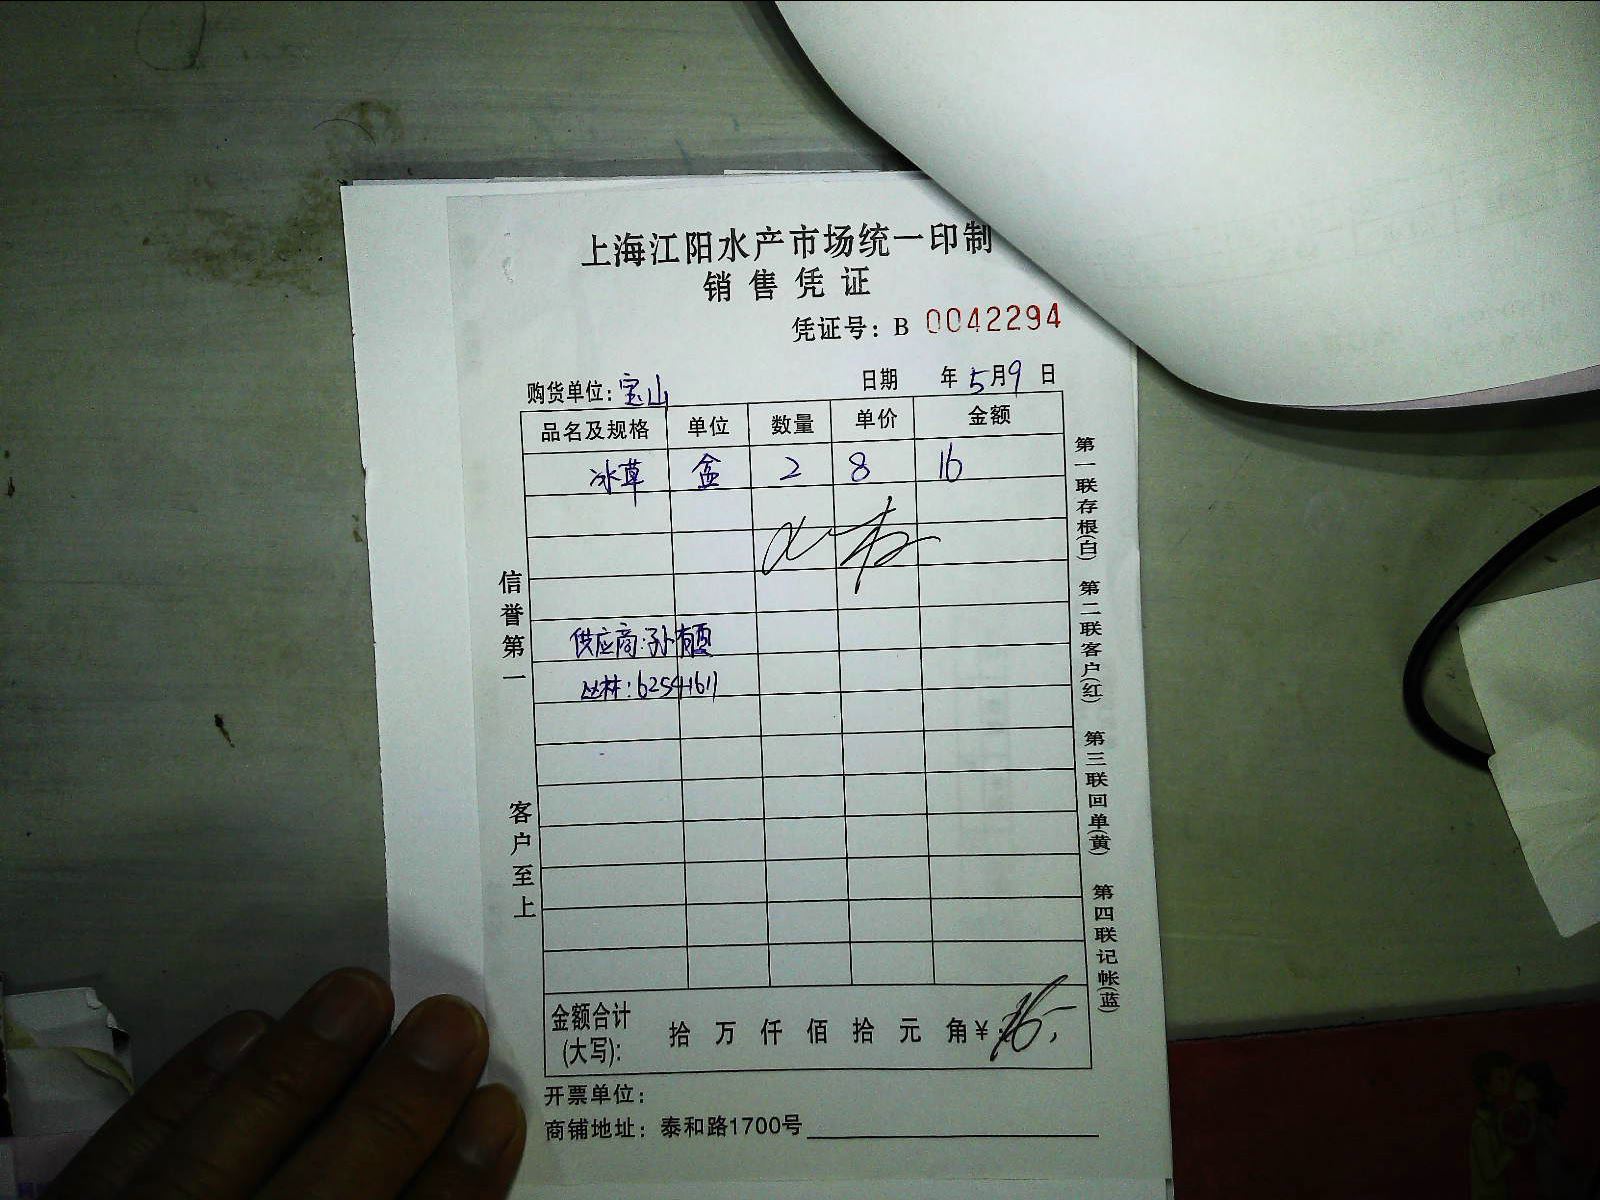 上海江阳水产市场统一印制
销售凭证
凭证号：B 0042294
购货单位：宝山 日期 年5月9日
品名及规格 单位 数量 单价 金额
冰草 盒 2 8 16
供应商：孙有
丛林：62541611
金额合计(大写)： 拾 万 仟 佰 拾 元 角 ¥：16-
开票单位：
商铺地址：泰和路1700号
信誉第一 客户至上
第一联存根(白) 第二联客户(红) 第三联回单(黄) 第四联记帐(蓝)